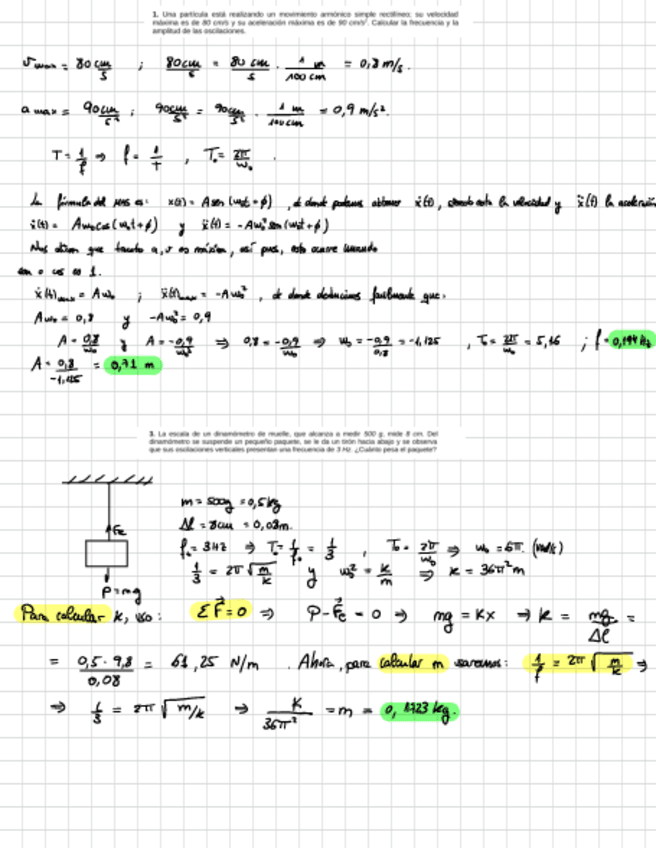 1. Una partícula está realizando un movimiento armónico simple rectilíneo; su velocidad
máxima es de 80 cm/s y su aceleración máxima es de 90 cm/s². Calcular la frecuencia y la
amplitud de las oscilaciones.
v max = 80 cm/s ; 80 cm/s = 80 cm/s · 1 m/100 cm = 0,8 m/s.
a max = 90 cm/s² ; 90 cm/s² = 90 cm/s² · 1 m/100 cm = 0,9 m/s².
T = 1/f ⇒ f = 1/T , T₀ = 2π/ω₀ .
La fórmula del MAS es: x(t) = A sen(ω₀t + φ) , de donde podemos obtener ẋ(t), siendo esta la velocidad y ẍ(t) la aceleración
ẋ(t) = Aω₀cos(ω₀t+φ) y ẍ(t) = -Aω₀² sen(ω₀t+φ)
Nos dicen que tanto a, v es máxima, así pues, esto ocurre cuando
sen o cos es 1.
ẋ(t)max = Aω₀ ; ẍ(t)max = -Aω₀² , de donde deducimos facilmente que:
Aω₀ = 0,8 y -Aω₀² = 0,9
A = 0,8/ω₀ y A = -0,9/ω₀² ⇒ 0,8 = -0,9/ω₀ ⇒ ω₀ = -0,9/0,8 = -1,125 , T₀ = 2π/ω₀ = 5,16 ; f = 0,194 Hz
A = 0,8/-1,125 = 0,71 m
3. La escala de un dinamómetro de muelle, que alcanza a medir 500 g, mide 8 cm. Del
dinamómetro se suspende un pequeño paquete, se le da un tirón hacia abajo y se observa
que sus oscilaciones verticales presentan una frecuencia de 3 Hz. ¿Cuánto pesa el paquete?
m = 500g = 0,5 kg
Δl = 8cm = 0,08m.
Fe
f₀ = 3Hz ⇒ T₀ = 1/f₀ = 1/3 , T₀ = 2π/ω₀ ⇒ ω₀ = 6π. (rad/s)
1/3 = 2π√(m/k) y ω₀² = k/m ⇒ k = 36π²m
P = mg
Para calcular k, uso: ΣF⃗ = 0 ⇒ P - F⃗e = 0 ⇒ mg = Kx ⇒ k = mg/Δl =
= 0,5 · 9,8/0,08 = 61,25 N/m . Ahora, para calcular m usaremos: 1/f = 2π√(m/k) ⇒
⇒ 1/3 = 2π√(m/k) ⇒ K/36π² = m = 0,1723 kg.